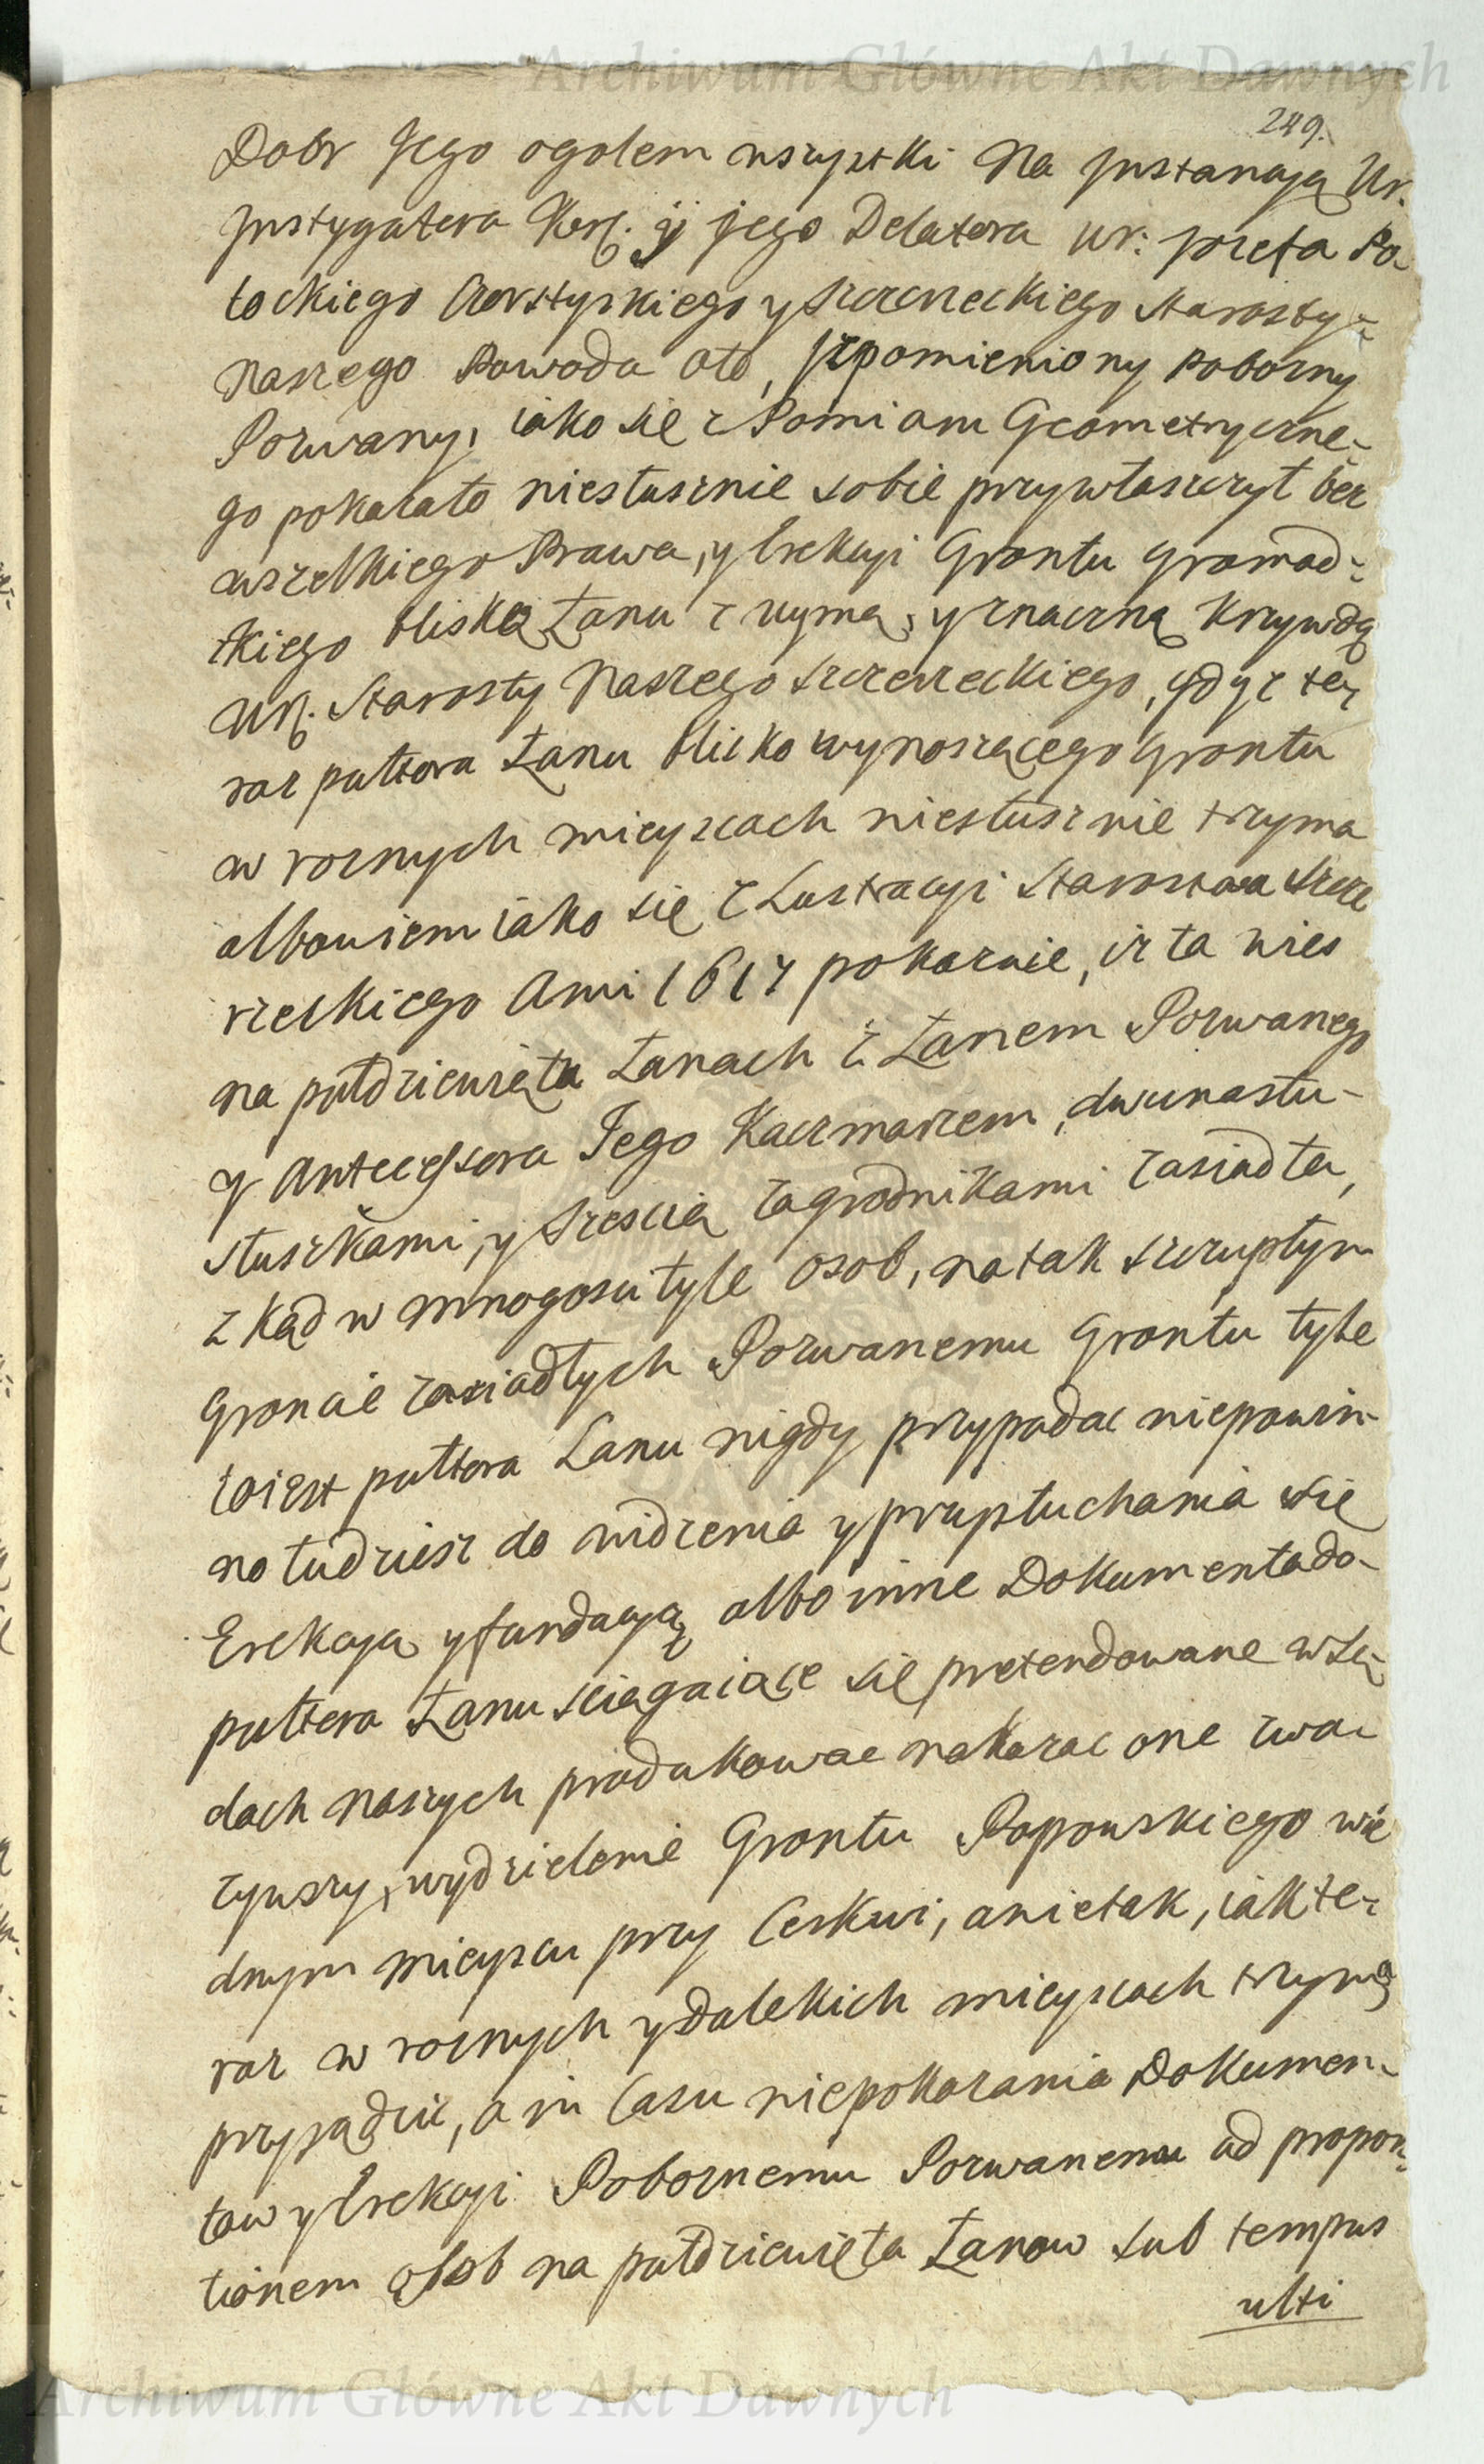 249.
Dobr Jego ogolem wszystki Na Jnstancyą Ur.
Jnstygatora Kor. y jego Delatora ur: Jozefa Po-
tockiego Czorstyńskiego y Szczerzeckiego Starosty
Naszego Powoda oto, wspomieniony Pobozny
Porwany, iako się z Pomiaru Geometryczne-
go pokazało niesłusznie sobie przywłaszczył bez
wszelkiego Prawa, y Erekcyi Grontu gromad-
zkiego blisko Łanu z uymą, y znaczną krzywdą
Ur. Starosty Naszego Szczerzeckiego, gdyz te-
raz pułtora Łanu blisko wynoszącego Grontu
w roznych mieyscach niesłusznie trzyma
albowiem iako się z Lustracyi Starostwa Szcze
rzeckiego Anni 1617 pokazuie, iz ta wies
na pułdziewięta Łanach z Łanem Porwanego
y Antecessora Jego Kaczmarzem, dwunastu-
słuszkami, y szescią zagrodnikami zasiadła,
z kąd w mnogosci tyle osob, na tak szczupłym
Groncie zasiadłych Porwanemu Grontu tyle
to iest pułtora Lanu nigdy przypadac niepowin-
no tudziesz do widzenia y przysłuchania się
Erekcyą y fundacyą albo inne Dokumenta do-
pułtora Łanu sciągaiące się pretendowane w Są-
dach naszych produkowac nakazac one zwa-
zywszy, wydzielenie Grontu Popowskiego wie-
dnym mieyscu przy Cerkwi, a nie tak, iak te-
raz w roznych y dalekich mieyscach trzymą
przysądzic, a in Casu niepokazania Dokumen-
tow y Erekcyi Poboznemu Porwanemu ad propor-
tionem osob na pułdziewięta Łanow sub tempus
ulti
Archiwum Główne Akt Dawnych
Archiwum Główne Akt Dawnych